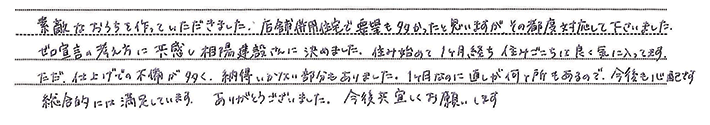 素敵なおうちを作っていただきました。店舗併用住宅で要望も多かったと思いますがその都度対応して下さいました。
ゼロ宣言の考え方に共感し相陽建設さんに決めました。住み始めて1ヶ月経ち住みごこちは良く気に入ってます。
ただ、仕上げでの不備が多く、納得いかない部分もありました。1ヶ月なのに直しが何ヶ所もあるので、今後も心配です
総合的には満足しています。ありがとうございました。今後共宜しくお願いします